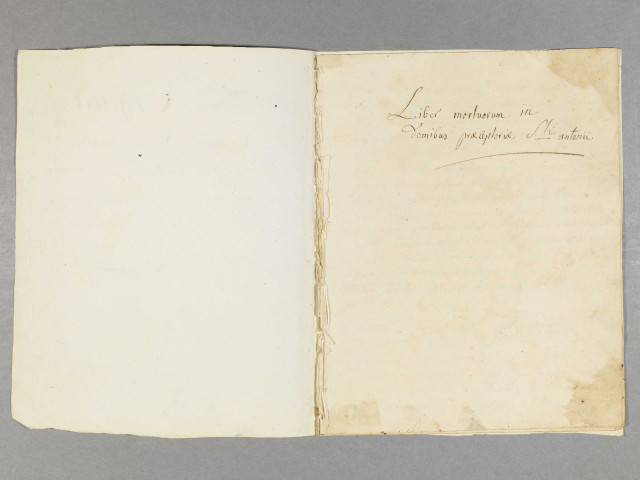 Liber mortuorum in
Domibus præceptoriæ S.ti antonii